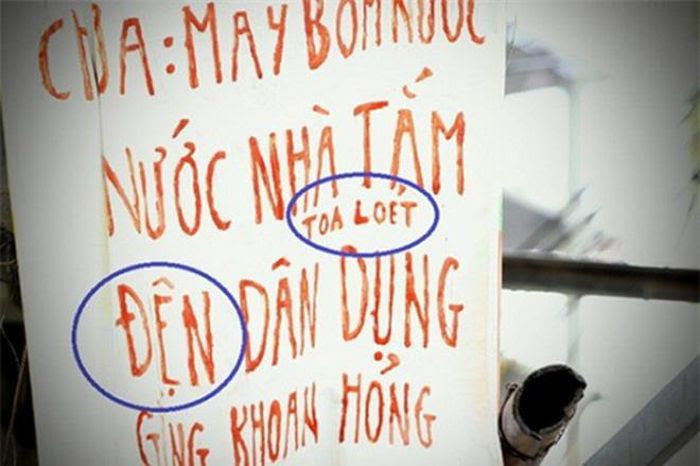 CHỮA: MÁY BƠM NƯỚC
NƯỚC NHÀ TẮM
TOA LOET
ĐỆN DÂN DỤNG
GING KHOAN HỎNG